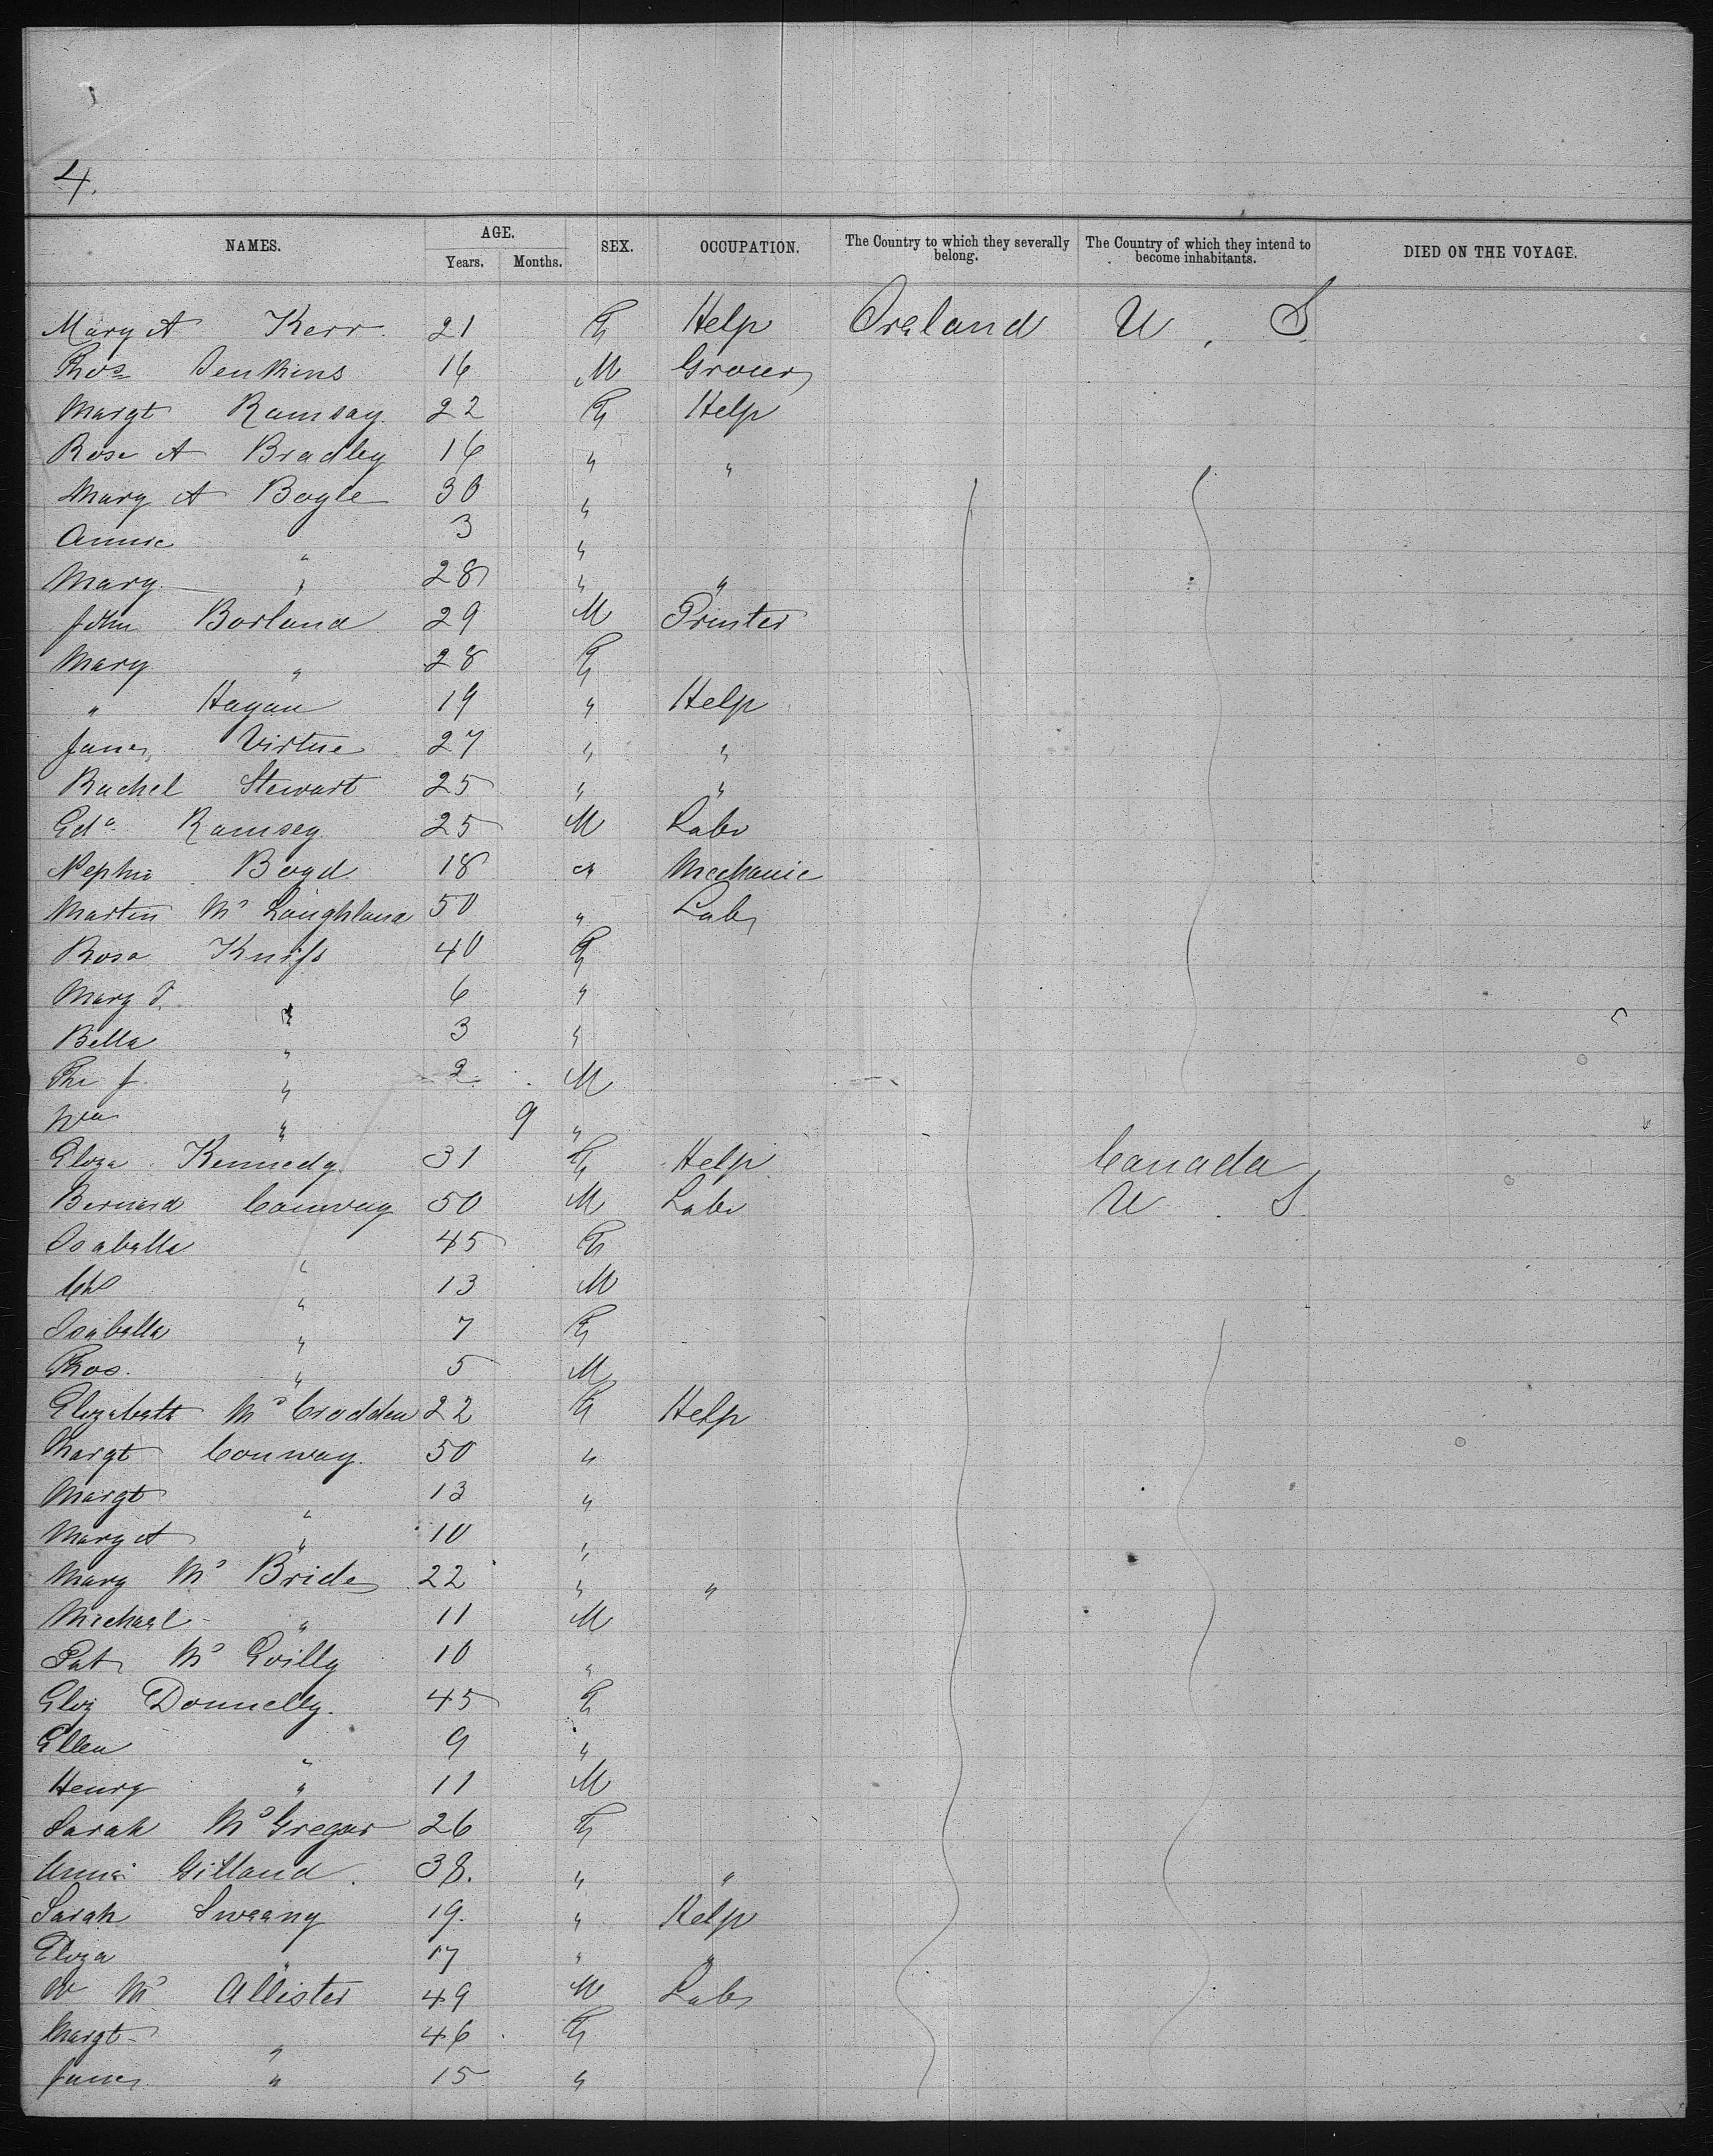 4.
NAMES. AGE. Years. Months. SEX. OCCUPATION. The Country to which they severally belong. The Country of which they intend to become inhabitants. DIED ON THE VOYAGE.
Mary A Kerr 21 F Help Ireland U. S.
Thos Jenkins 16 M Grocer
Margt Ramsay 22 F Help
Rose A Bradley 16 " "
Mary A Boyle 30 "
Annie " 3 "
Mary " 28 " "
John Borland 29 M Printer
Mary " 28 F
" Hagan 19 " Help
Jane Virtue 27 " "
Rachel Stewart 25 " "
Edd Ramsey 25 M Labr
Boyd 18 " Mechanic
Martin Mc Laughland 50 " Labr
Rosa 40 F
Mary J. " 6 "
Bella " 3 "
J. " 2 M
Wm " 9 "
Eliza Kennedy 31 F Help Canada
Bernard Conway 50 M Labr U. S.
Isabella " 45 F
" 13 M
Isabella " 7 F
Thos. " 5 M
Elizabeth Mc Crodden 22 F Help
Margt Conway. 50 "
Margt " 13 "
Mary A " 10 "
Mary Mc Bride 22 " "
Michael " 11 M
Pat Mc 10 "
Eliz Donnelly. 45 F
Ellen " 9 "
Henry " 11 M
Sarah McGregor 26 F
Annie Gilland. 38. " "
Sarah Sweeny 19. " Help
Eliza " 17 " "
W Mc Allister 49 M Labr
Margt " 46 F
Jane " 15 "